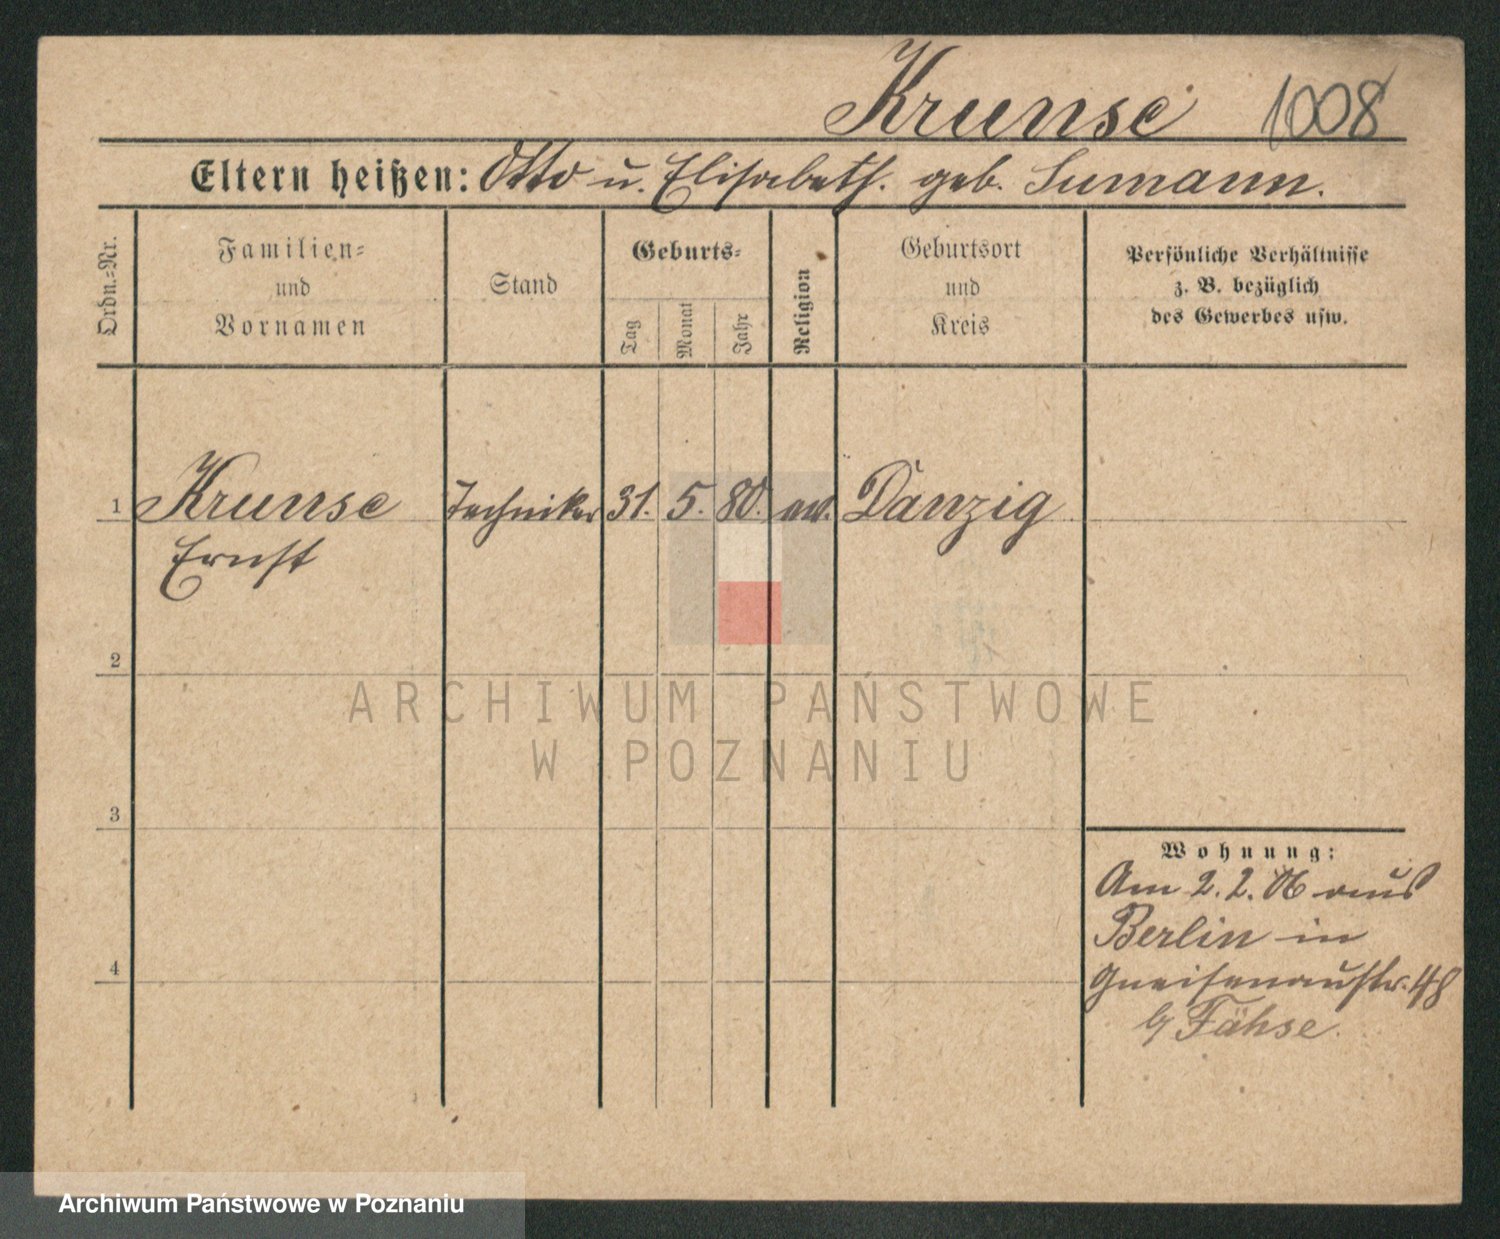 Krunse 1008
Eltern heißen: Otto u. Elisabeth. geb. Sumann.
Ordn.-Nr.
Familien-
und
Vornamen
Stand
Geburts-
Tag
Monat
Jahr
Religion
Geburtsort
und
Kreis
Persönliche Verhältnisse
z. B. bezüglich
des Gewerbes usw.
1 Krunse Techniker 31. 5. 80. ev. Danzig
Ernst
2
ARCHIWUM PAŃSTWOWE
W POZNANIU
3
Wohnung:
Am 2. 2. 06 aus
Berlin in
4
Gneisenaustr. 48
b/ Fähse.
Archiwum Państwowe w Poznaniu